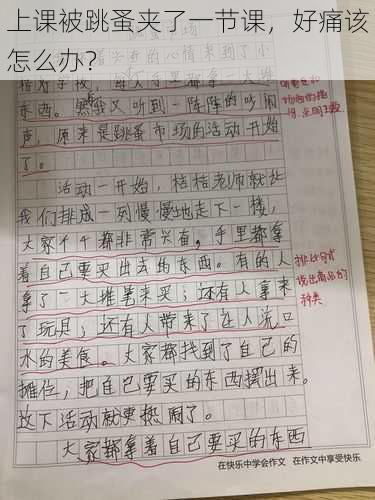 上课被跳蚤夹了一节课，好痛该
怎么办？
兴奋的心情来到了小
东西。我又听到一阵阵的吵闹
声，原来是跳蚤市场的活动开始
了。
活动一开始，桔桔老师就让
我们排成一列慢慢地走下一楼，
大家个个都非常兴奋，手里都拿
着自己要买出去的东西。有的人
拿了一大堆笔来买；还有人拿来
了玩具；还有人带来了让人流口
水的美食。大家都找到了自己的
摊位，把自己要买的东西摆出来。
这下活动就更热闹了。
大家都拿着自己要买的东西
排比句式
说出商品的
种类
在快乐中学会作文 在作文中享受快乐